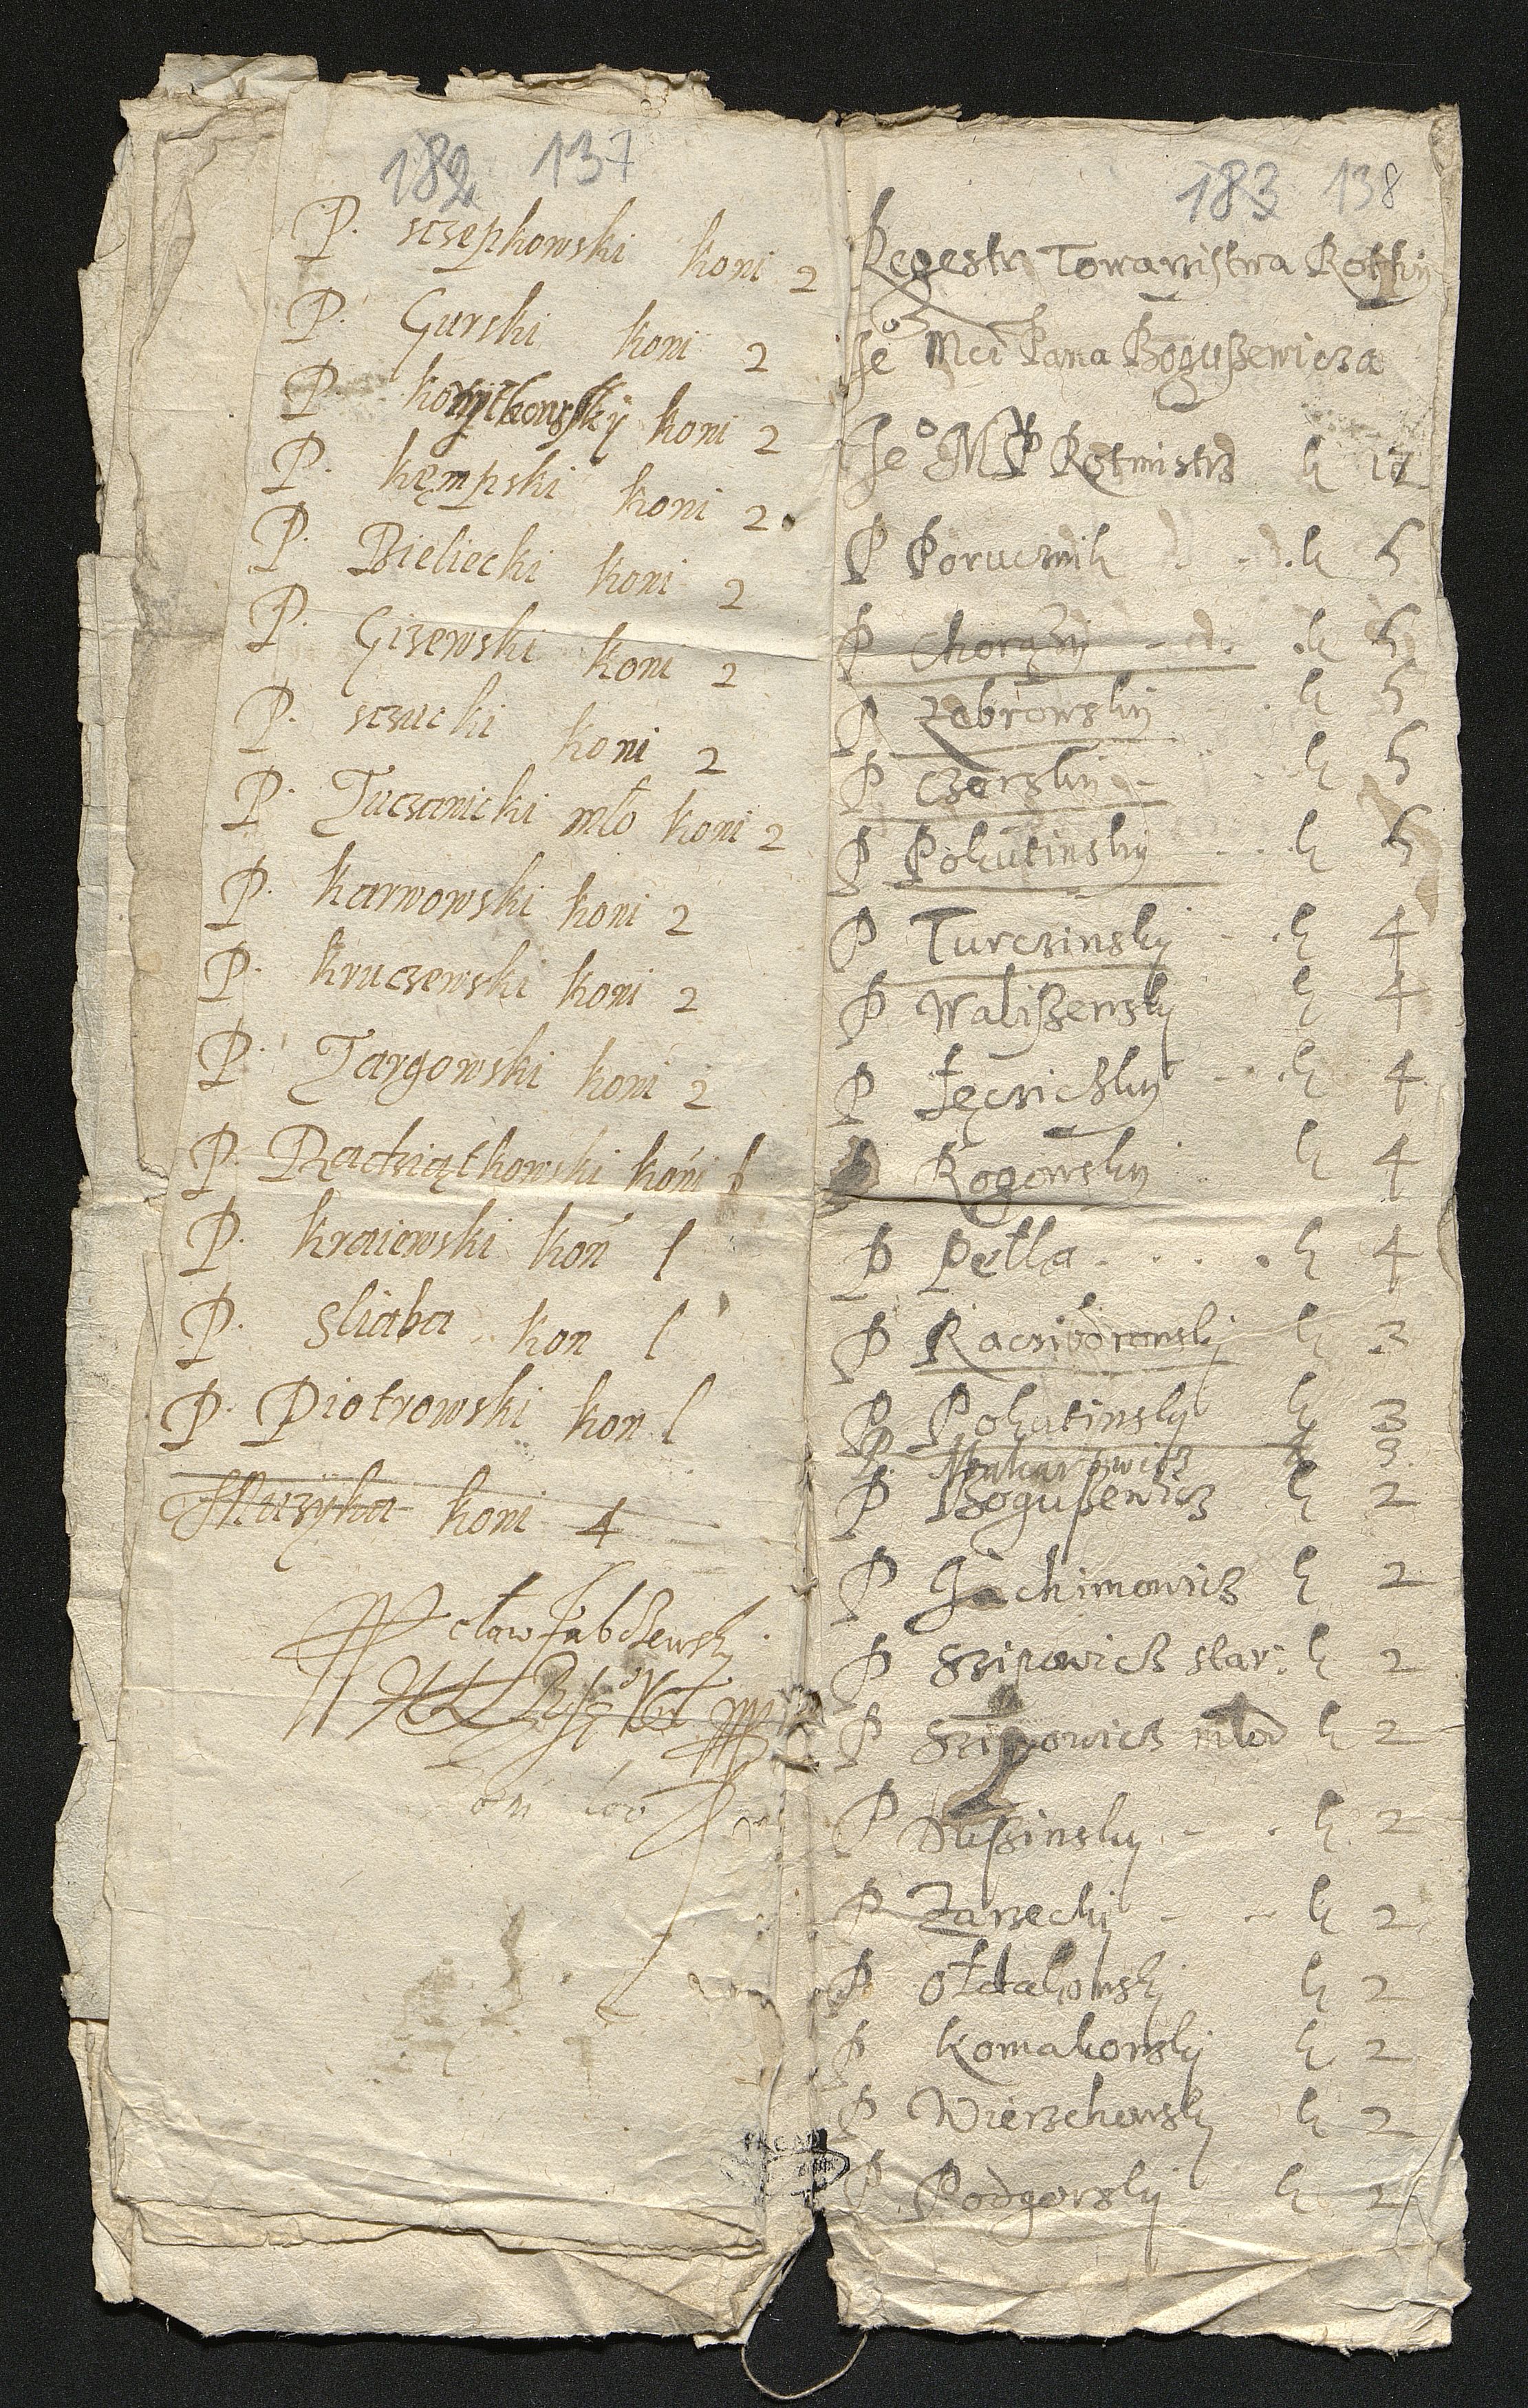 182 137
P. sczepkowski koni 2
P. Gurski koni 2
P. koni 2
P. kępski koni 2
P. Bieliecki koni 2
P. Gizewski koni 2
P. sczucki koni 2
P. Tuczanicki mło koni 2
P. karwowski koni 2
P. kruczewski koni 2
P. Targowski koni 2
P. Radziątkowski koni 1
P. kraiewski koń 1
P. Sliaba kon 1
P. Piotrowski kon 1
Muzyka koni 4
183 138
Regestr Towarzistwa Rothy
Je° Mci Pana Bogußewicza
Je° M P Rotmistrz k 12
P Porucznik k 5
P Chorązy k 5
P Zebrowsky k 5
P Czarsky k 5
P Pokutinsky k 5
P Turczinsky k 4
P Walißewsky k 4
P Łęczicky k 4
P Rogowsky k 4
P Petla k 4
P Racziborowsky k 3
P Pokutinsky k 3
P. k 3
P Bogußewicz k 2
P Jachimowicz k 2
P Szipowicz star: k 2
P Szipowicz młod k 2
P Dußinsky k 2
P Zarzecki k 2
P Ołdakowsky k 2
P Komakowsky k 2
P Wierzchowsky k 2
P Podgorsky k 2